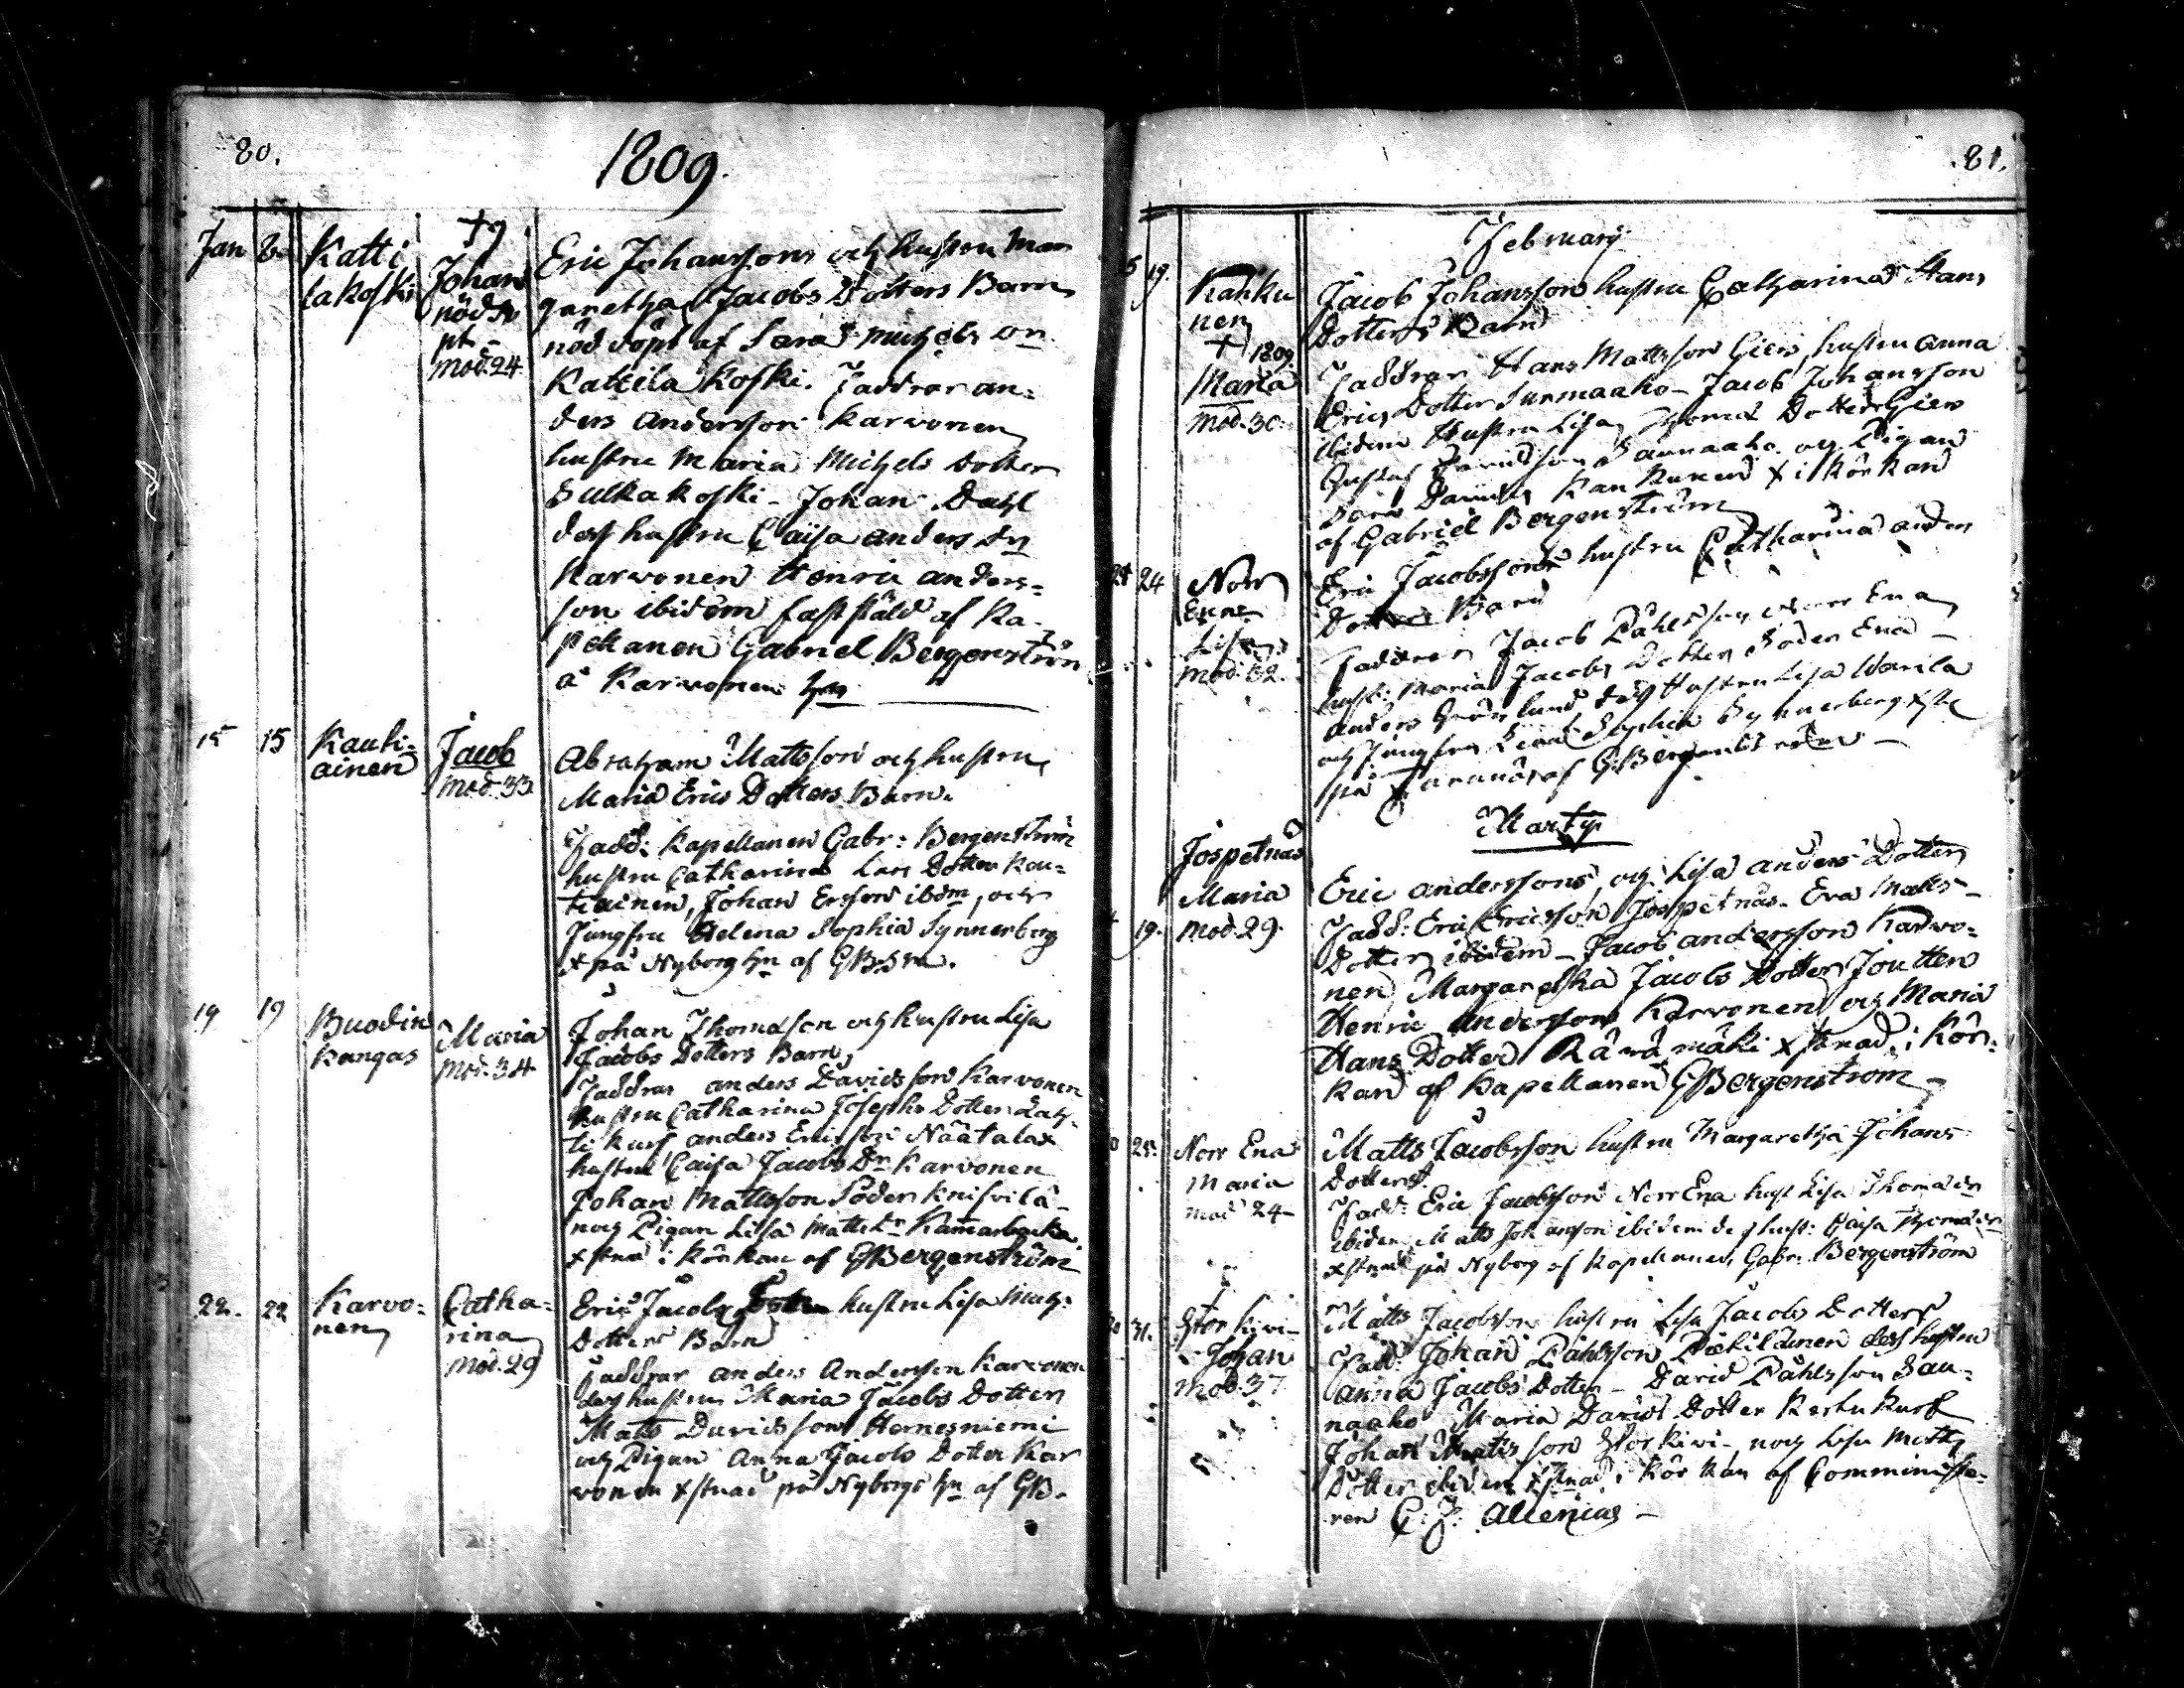 80.
1809.
Jan 8
Katti
lakoski
†9
Johan
nöddö
pt
Mod. 24
Eric Johanssons och hustru Mar
garetha Jacobs Dotters Barn
nöd döpt af Sara Michels Dr
Kattila Koski. Faddrar An=
ders Andersson Karvonen
hustru Maria Michels Dotter
Sulkakoski - Johan Dahl
dess hustru Caisa Anders Dr
Karvonen Henric Anders=
son ibidem fastställd af Ka-
pellanen Gabriel Bergenström
å Karvonen hn
15 15
Kauhi=
ainen
Jacob
Mod. 33
Abraham Mattsson och hustru
Maria Erics Dotters Barn.
Fadd: Kapellanen Gabr: Bergenström
hustru Catharina Lars Dotter Kau=
hiainen, Johan Ersson ibdm, och
Jungfru Helena Sophia Synnerberg
x på Nyborg hn af GBstm.
19 19
Buodin
kangas
Maria
Mod. 34
Johan Thomasson och hustru Lisa
Jacobs Dotters Barn
Faddrar Anders Davidsson Karvonen
hustru Catharina Josephs Dotter Lah=
ti kurf Anders Ericsson Näätalax
hustru Caisa Jacobs Dr Karvonen
Johan Mattsson Söder Knifvilä -
och Pigan Lisa Matts Dr Kamarbacka
xstnad i Körkan af GBergenström
22. 22
Karvo=
nen
Catha=
rina
Mod. 29
Eric Jacobs hustru Lisa Mich:
Dotters Barn
Faddrar Anders Andersson Karvonen
dess hustru Maria Jacobs Dotter
Matts Davidsson Hernesniemi
och Pigan Anna Jacobs Dotter Kar
vonen xstnad på Nyborgs hn af GB.
81.
February
19.
Kahku
nen
† 1809
Maria
Mod. 30
Jacob Johansson hustru Catharina Hans
Dotters Barn
Faddrar Hans Mattsson Giers, hustru Anna
Erics Dotter Surmaaho - Jacob Johansson
ibidem Hustru Lisa Thomas Dotter Giers
Gustaf Davidsson Saunaaho och Pigan
Davids Kankunen x i Körkan
af Gabriel Bergenström
24 24
Norr
Ena
Lisa
Mod. 32
Eric Jacobssons hustru Catharina Anders
Dotters Barn
Faddrar Jacob Påhlsson Norr Ena
hust: Maria Jacobs Dotter Söder Ena -
Anders Grönlund dess Hustru Lisa Warila
och Jungfru Lena Sophia Synnerberg xste
på af GBergenström -
Marty
19.
Jospetnäs
Maria
Mod. 29.
Eric Anderssons, och Lisa Anders Dotter
Fadd: Eric Ericsson Jospetnäs - Eva Matts -
Dotter ibidem - Jacob Andersson Karvo=
nen Margaretha Jacobs Dotter Joutten
Henric Andersson Karvonen och Maria
Hans Dotter Räwämäki xstnad i Kör=
kan af Kapellanen GBergenström
25.
Norr Ena
Maria
Mod 24 -
Matts Jacobsson hustru Margaretha Johans
Dotters
Fadd: Eric Jacobsson Norr Ena hust Lisa Thomæ Dr
ibidem Matts Johansson ibidem dess hust: Caisa Thomæ Dr
xstnad på Nyborg af Kapellanen, Gabr. Bergenström
31.
†
Stor kiwi -
Johan
Mod. 37
Matts Jacobsson hustru Lisa Jacobs Dotters
Fadd: Johan Påhlsson Piekilainen dess hustru
Anna Jacobs Dotter - David Påhlsson Sau=
naaho Maria Davids Dotter Kestu Kurf
Johan Mattsson Stor kiwi -, och Lisa Matts
Dotter ibidem xstnad i Körkan af Comminista=
ren C. J. Alcenius -